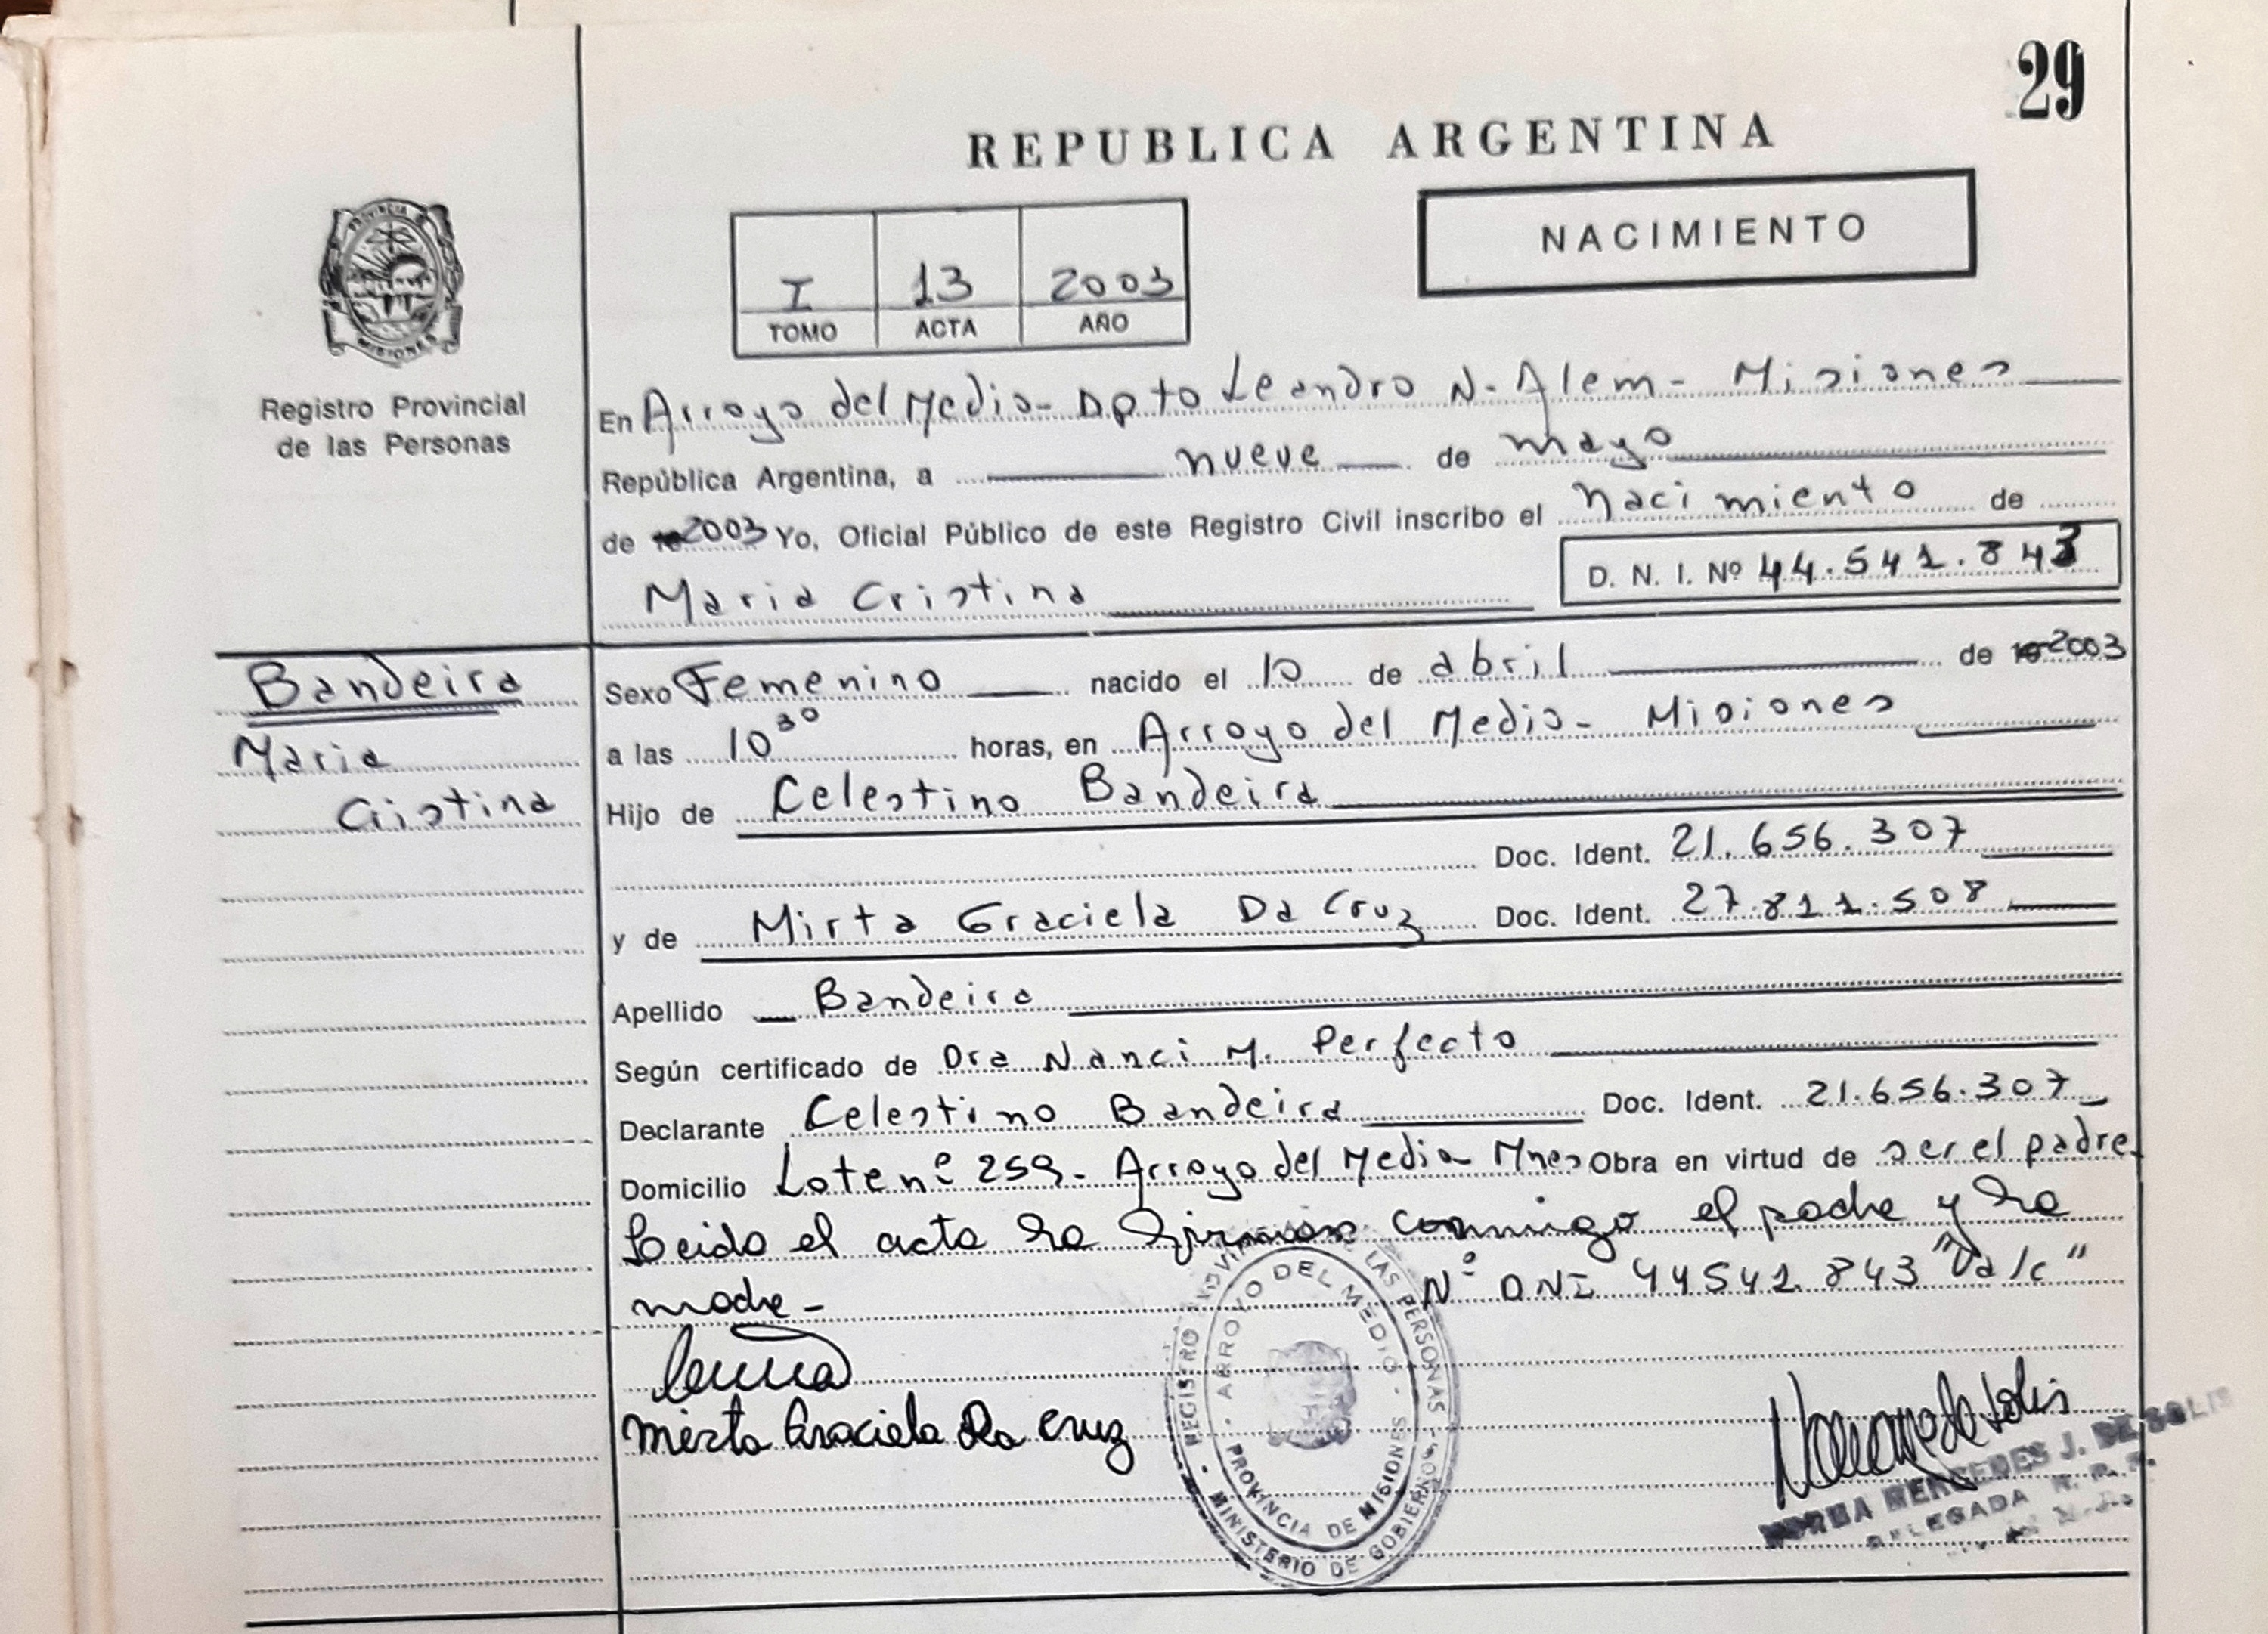 29
REPUBLICA ARGENTINA
NACIMIENTO
I 13 2003
TOMO ACTA AÑO
PROVINCIA DE MISIONES
Registro Provincial
de las Personas
En Arroyo del Medio- Dpto Leandro N. Alem- Misiones
República Argentina, a nueve de mayo
de 2003 Yo, Oficial Público de este Registro Civil inscribo el nacimiento de
D. N. I. Nº 44.541.843
Maria Cristina
Bandeira
Maria
Cristina
Sexo Femenino nacido el 10 de abril de 2003
a las 10 30 horas, en Arroyo del Medio- Misiones
Hijo de Celestino Bandeira
Doc. Ident. 21.656.307
y de Mirta Graciela Da Cruz Doc. Ident. 27.811.508
Apellido Bandeira
Según certificado de Dra Nanci M. Perfecto
Declarante Celestino Bandeira Doc. Ident. 21.656.307
Domicilio Lote nº 259- Arroyo del Medio- Mnes Obra en virtud de ser el padre
Leido el acta la firman conmigo el padre y la
madre- Nº DNI 44541.843 "Vale"
Mirta Graciela Da Cruz
REGISTRO PROVINCIAL DE LAS PERSONAS
ARROYO DEL MEDIO
PROVINCIA DE MISIONES
MINISTERIO DE GOBIERNO
NORMA MERCEDES J. DE SOLIS
DELEGADA R. P. P.